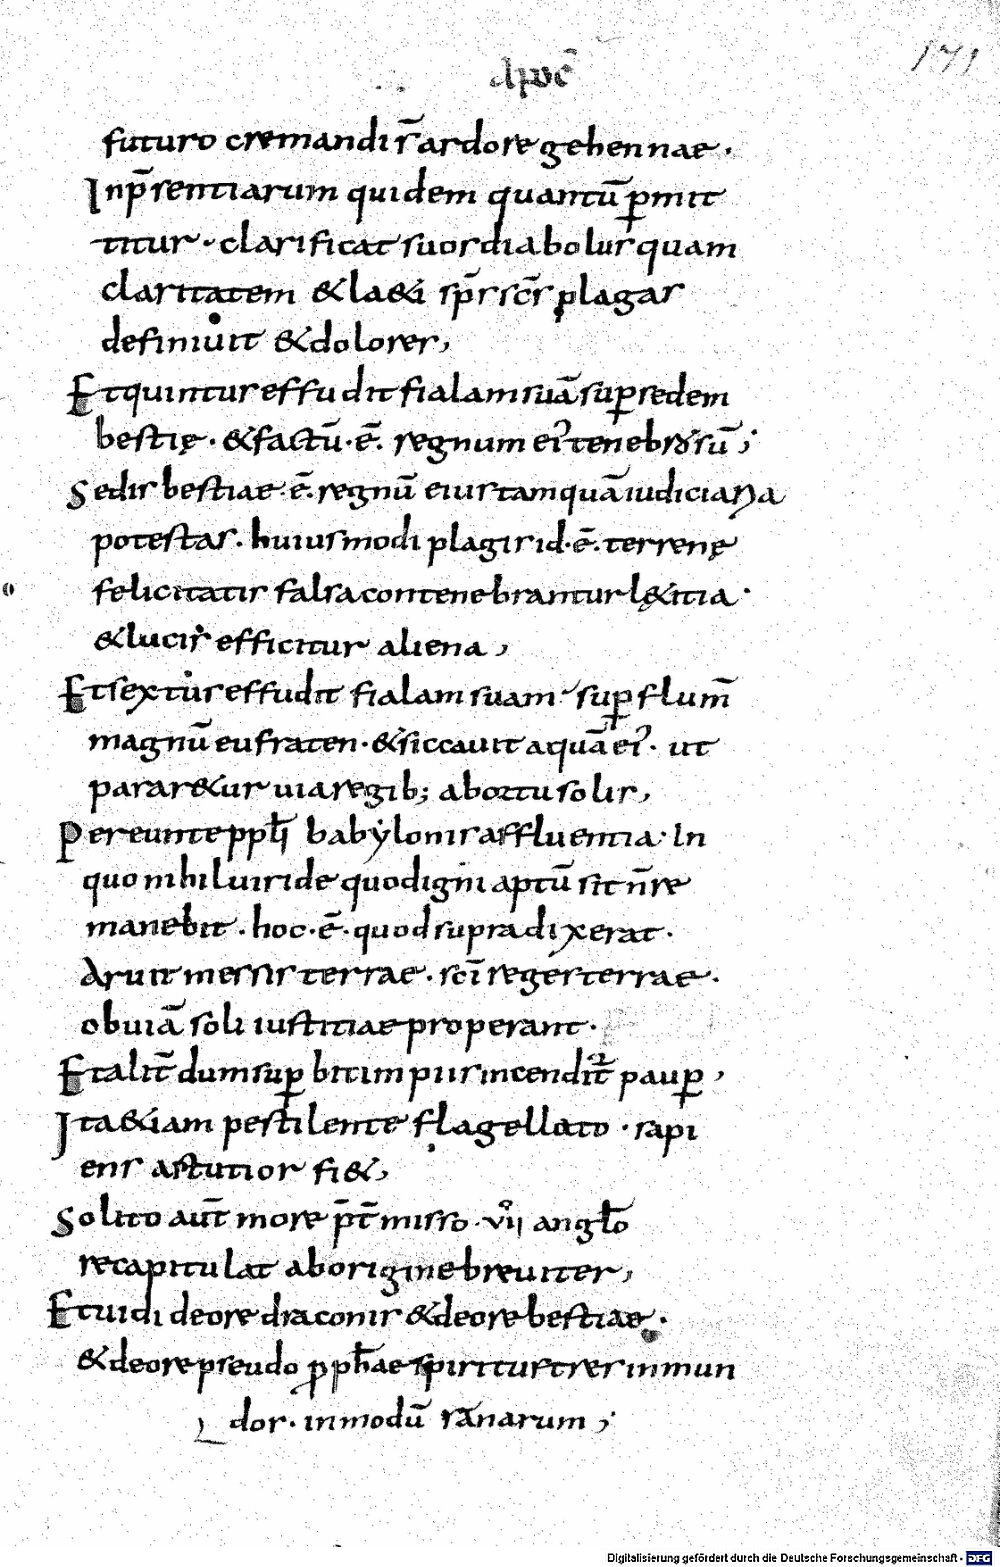 APOC̄
171
futuro cremandi s̄ ardore gehennae.
Inp̄sentiarum quidem quantū p̱mit
titur. clarificat suos diabolus quam
claritatem & la&i sp̄s sc̄s plagas
definiuit & dolores,
Et quintus effudit fialam suā sup̱ sedem
bestię. & factū. ē. regnum ei' tenebrosū;
Sedis bestiae. ē. regnū eius tamquā iudiciaria
potestas. huiusmodi plagis id. ē. terrenę
felicitatis falsa contenebrantur lę&itia.
& lucis efficitur aliena,
Et sextus effudit fialam suam sup̱ flum̄
magnū eufraten. & siccauit aquā ei'. ut
parar&ur uia regib; ab ortu solis,
Pereunte ppłi babẏlonis affluentia. In
quo nihil uiride quod igni aptū sit n̄ re
manebit. hoc. ē. quod supra dixerat.
Aruit messis terrae. sc̄i reges terrae.
obuiā soli iustitiae properant.
Et alit̄ dum sup̱bit impius incendit̄ paup̱,
Ita &iam pestilente flagellato. sapi
ens astutior fi&,
Solito aut̄ more p̄t̄misso. vii anglo
recapitulat ab origine breuiter,
Et uidi de ore draconis & de ore bestiae.
& de ore pseudo ꝓph̄ae spiritus tres inmun
dos. in modū ranarum;
Digitalisierung gefördert durch die Deutsche Forschungsgemeinschaft - DFG